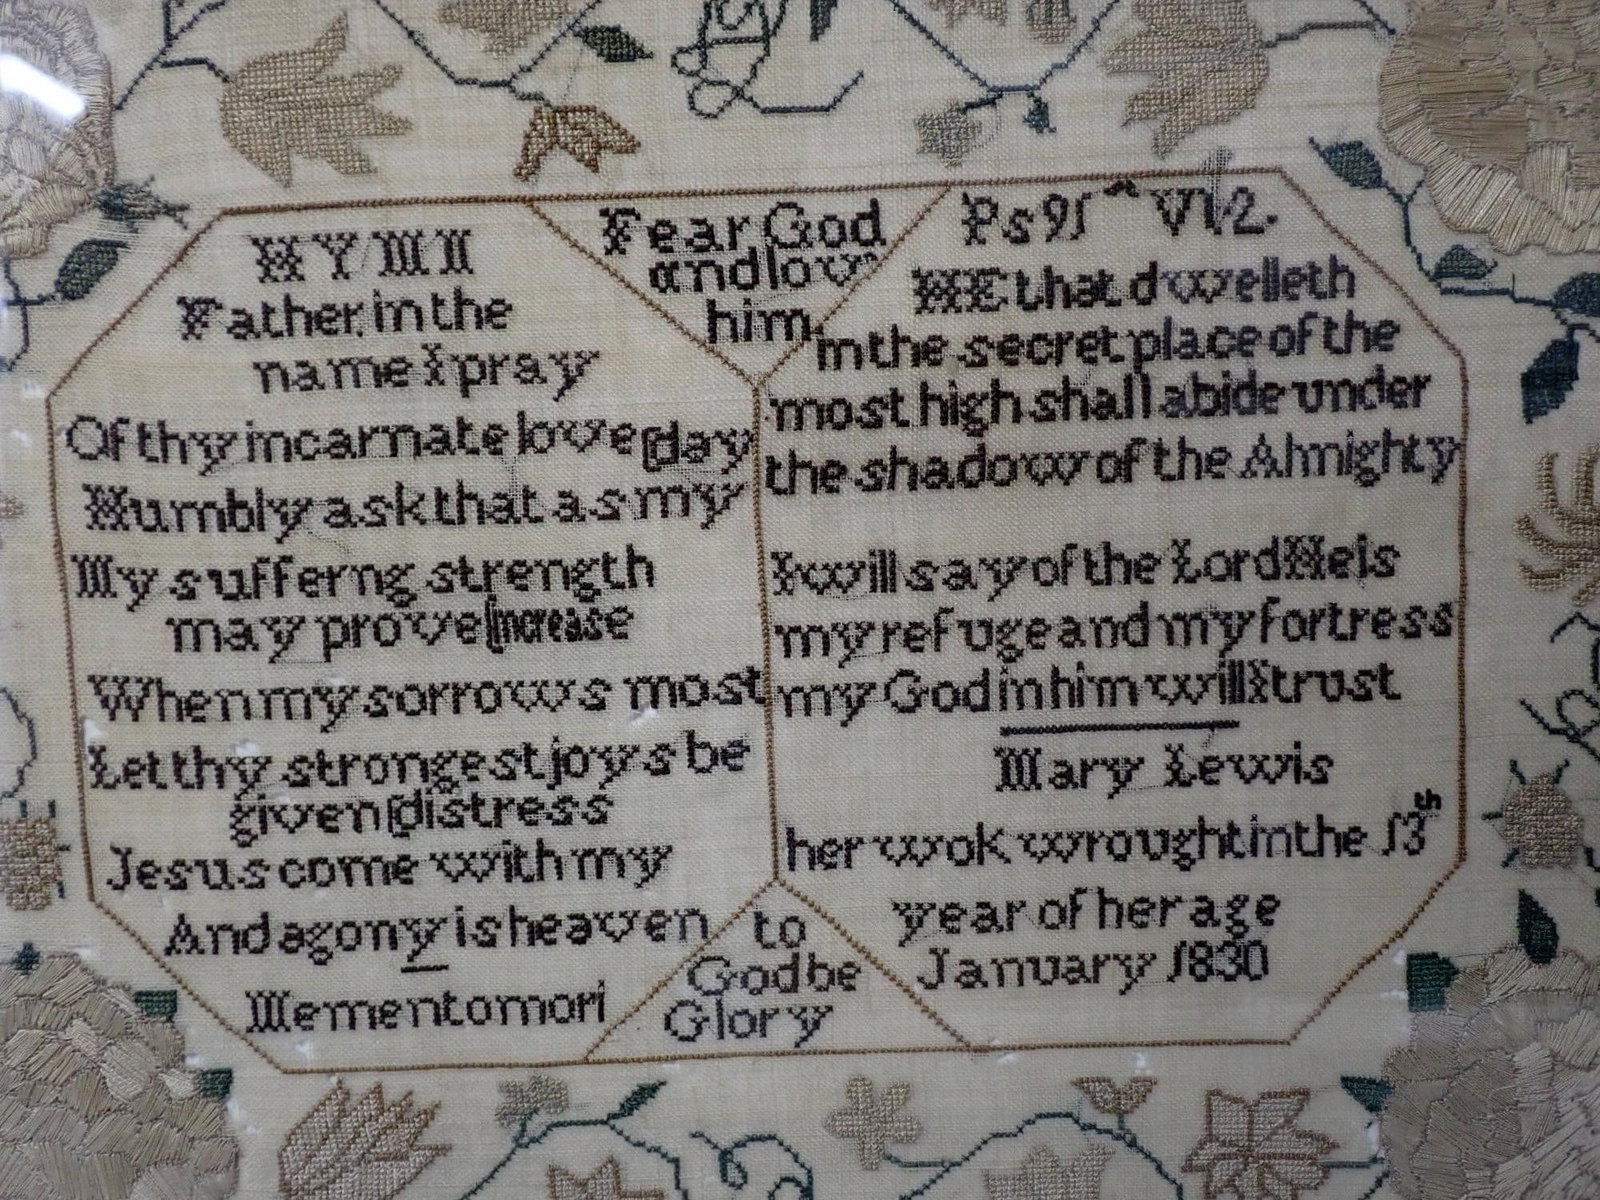 HYMN
Father in the
name I pray
Of thy incarnate love day
Humbly ask that as my
My sufferng strength
may prove increase
When my sorrows most
Let thy strongest joys be
given distress
Jesus come with my
And agony is heaven
Memento mori
Fear God
and lov
him
Ps 91 V 1 2
HE that dwelleth
in the secret place of the
most high shall abide under
the shadow of the Almighty
I will say of the Lord He is
my refuge and my fortress
my God in him will I trust
Mary Lewis
her wok wrought in the 13th
year of her age
January 1830
to
God be
Glory